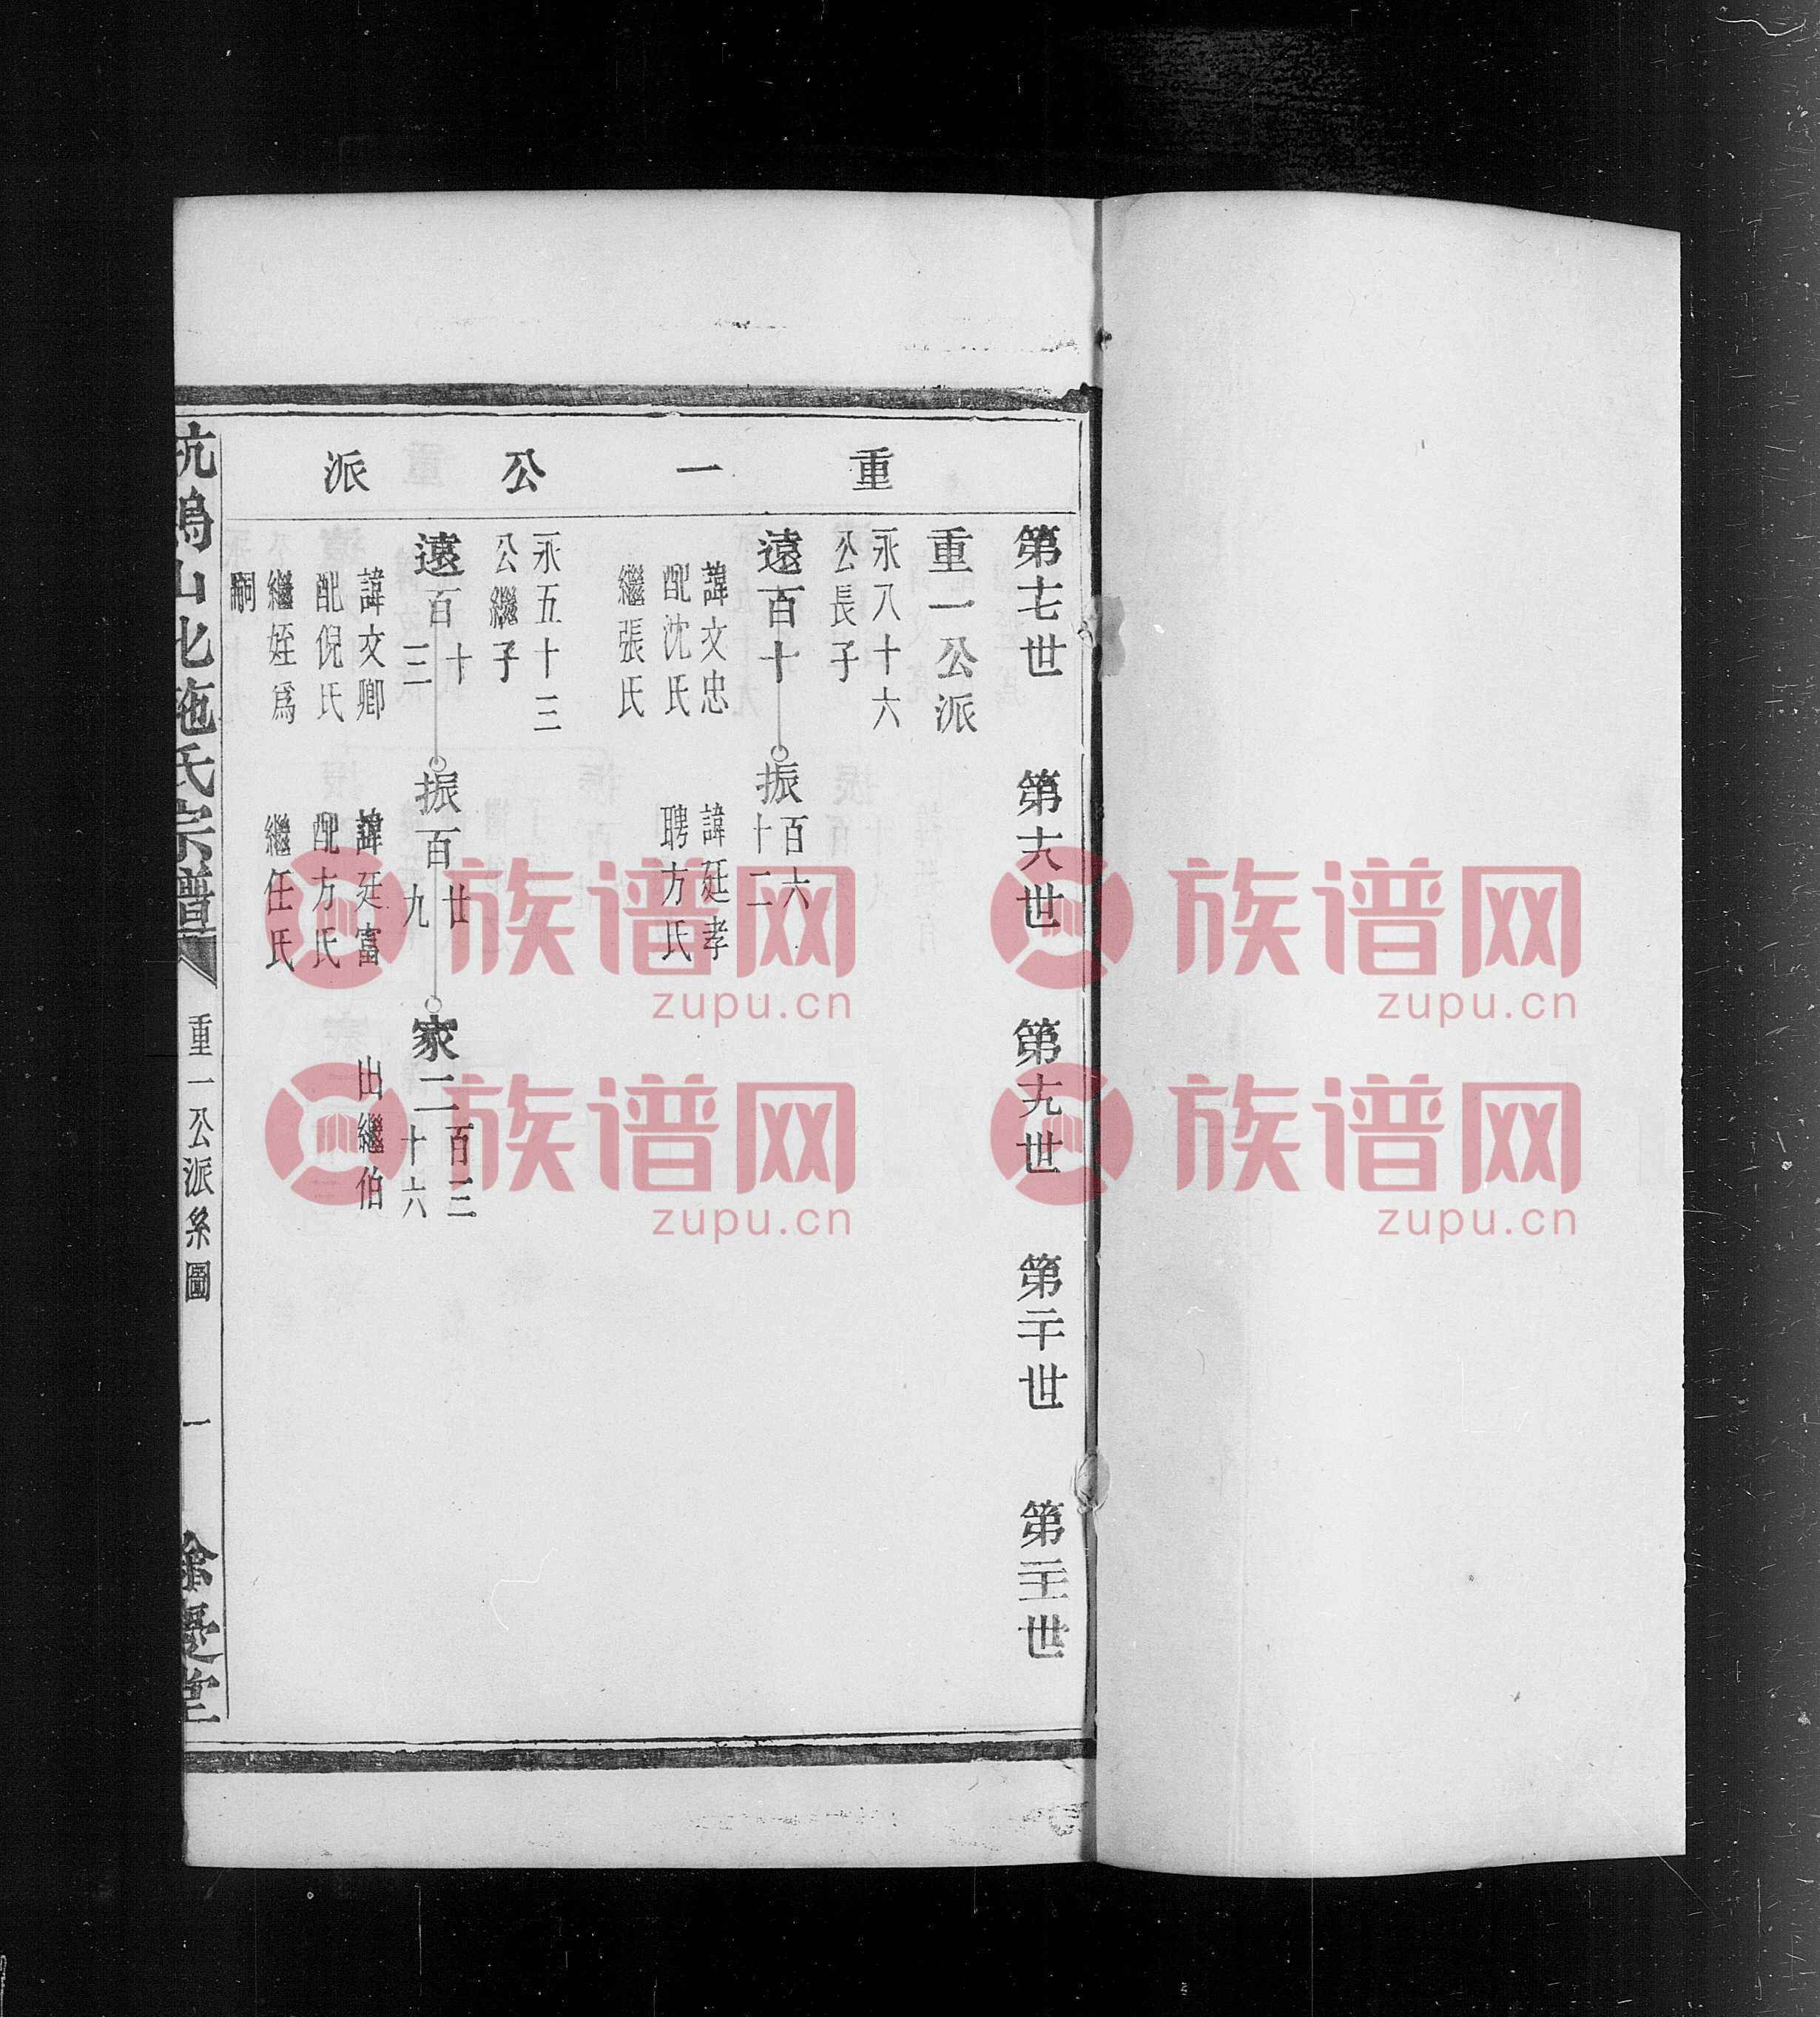 重一公派
第十七世
第十八世
第十九世
第二十世
第二十一世
重一公派
永八十六
公長子
遠百十
諱文忠
配沈氏
繼張氏
振百六
十二
諱廷孝
聘方氏
永五十三
公繼子
遠百十
三
諱文卿
配倪氏
繼姪爲
嗣
振百廿
九
諱廷富
配方氏
繼任氏
家二百三
十六
出繼伯
杭塢山北施氏宗譜
重一公派系圖
一
餘慶堂
族谱网
zupu.cn
族谱网
zupu.cn
族谱网
zupu.cn
族谱网
zupu.cn